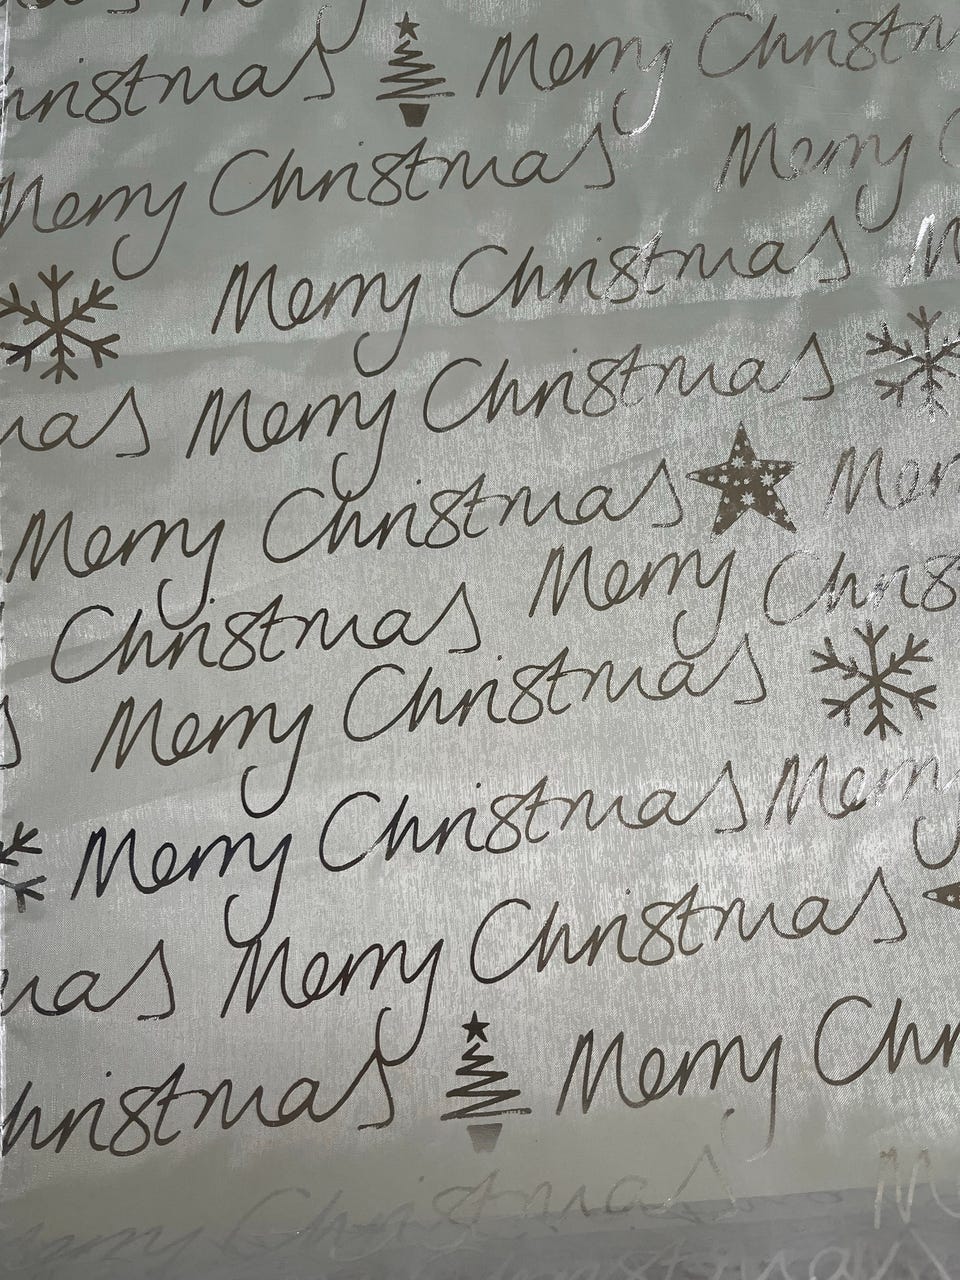 hristmas Merry Christm
Merry Christmas Merry C
Merry Christmas M
mas Merry Christmas
Merry Christmas Mer
Christmas Merry Chris
s Merry Christmas
Merry Christmas Merry
mas Merry Christmas
hristmas Merry Chr
Merry Christmas M